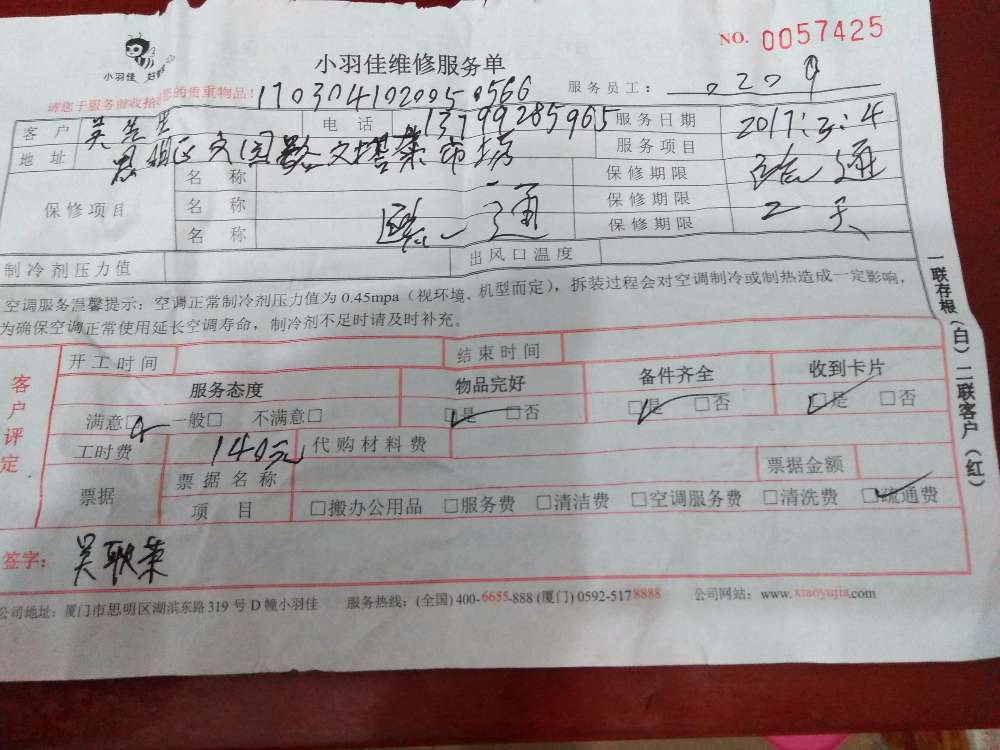 NO. 0057425
小羽佳维修服务单
小羽佳
请您于服务前收拾 的贵重物品!
服务员工: 0209
客户 吴 电话 13799285965 服务日期 2017.3.4
地址 文园路文塔菜市场 服务项目 疏通
保修项目 名称 保修期限 2天
名称 疏通 保修期限
名称 保修期限
制冷剂压力值 出风口温度
空调服务温馨提示:空调正常制冷剂压力值为 0.45mpa(视环境、机型而定),拆装过程会对空调制冷或制热造成一定影响,
为确保空调正常使用延长空调寿命,制冷剂不足时请及时补充。
一联存根(白)二联客户(红)
客户评定
开工时间 结束时间
服务态度 物品完好 备件齐全 收到卡片
满意□ 一般□ 不满意□ □是 □否 □是 □否 □是 □否
工时费 140元 代购材料费
票据 票据名称 票据金额
项目 □搬办公用品 □服务费 □清洁费 □空调服务费 □清洗费 □疏通费
签字: 吴耿荣
公司地址:厦门市思明区湖滨东路 319 号 D 幢小羽佳 服务热线:(全国) 400-6655-888 (厦门) 0592-5178888 公司网站:www.xiaoyujia.com